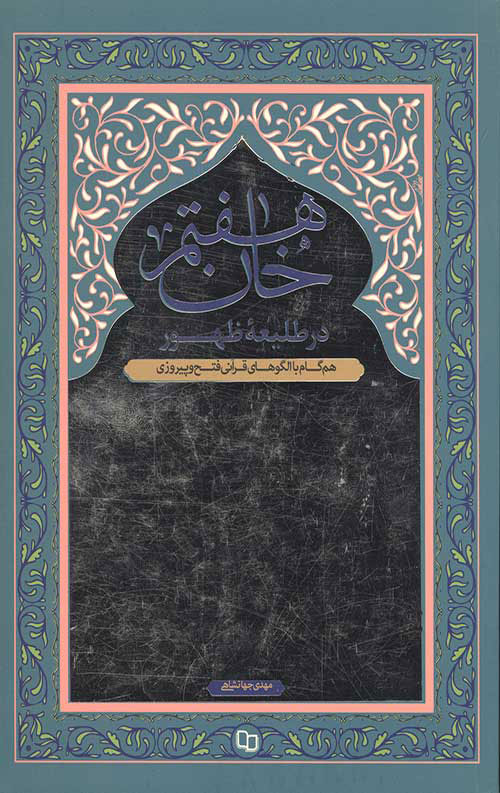 خان هفتم
در طلیعهٔ ظهور
هم‌گام با الگوهای قرآنی فتح و پیروزی
مهدی جهانشاهی